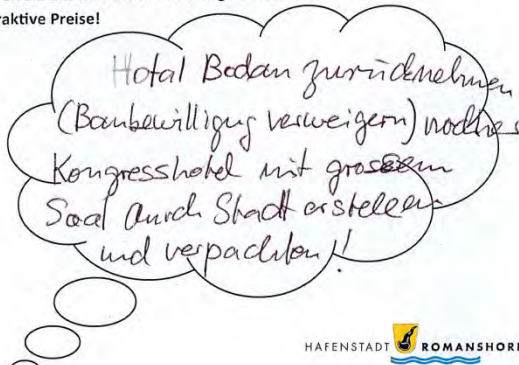 raktive Preise!
Hotal Bodan zurücknehmen
(Baubewilligung verweigern)
Kongresshotel mit grossem
Saal durch Stadt erstellen
und verpachten!!
HAFENSTADT ROMANSHORN